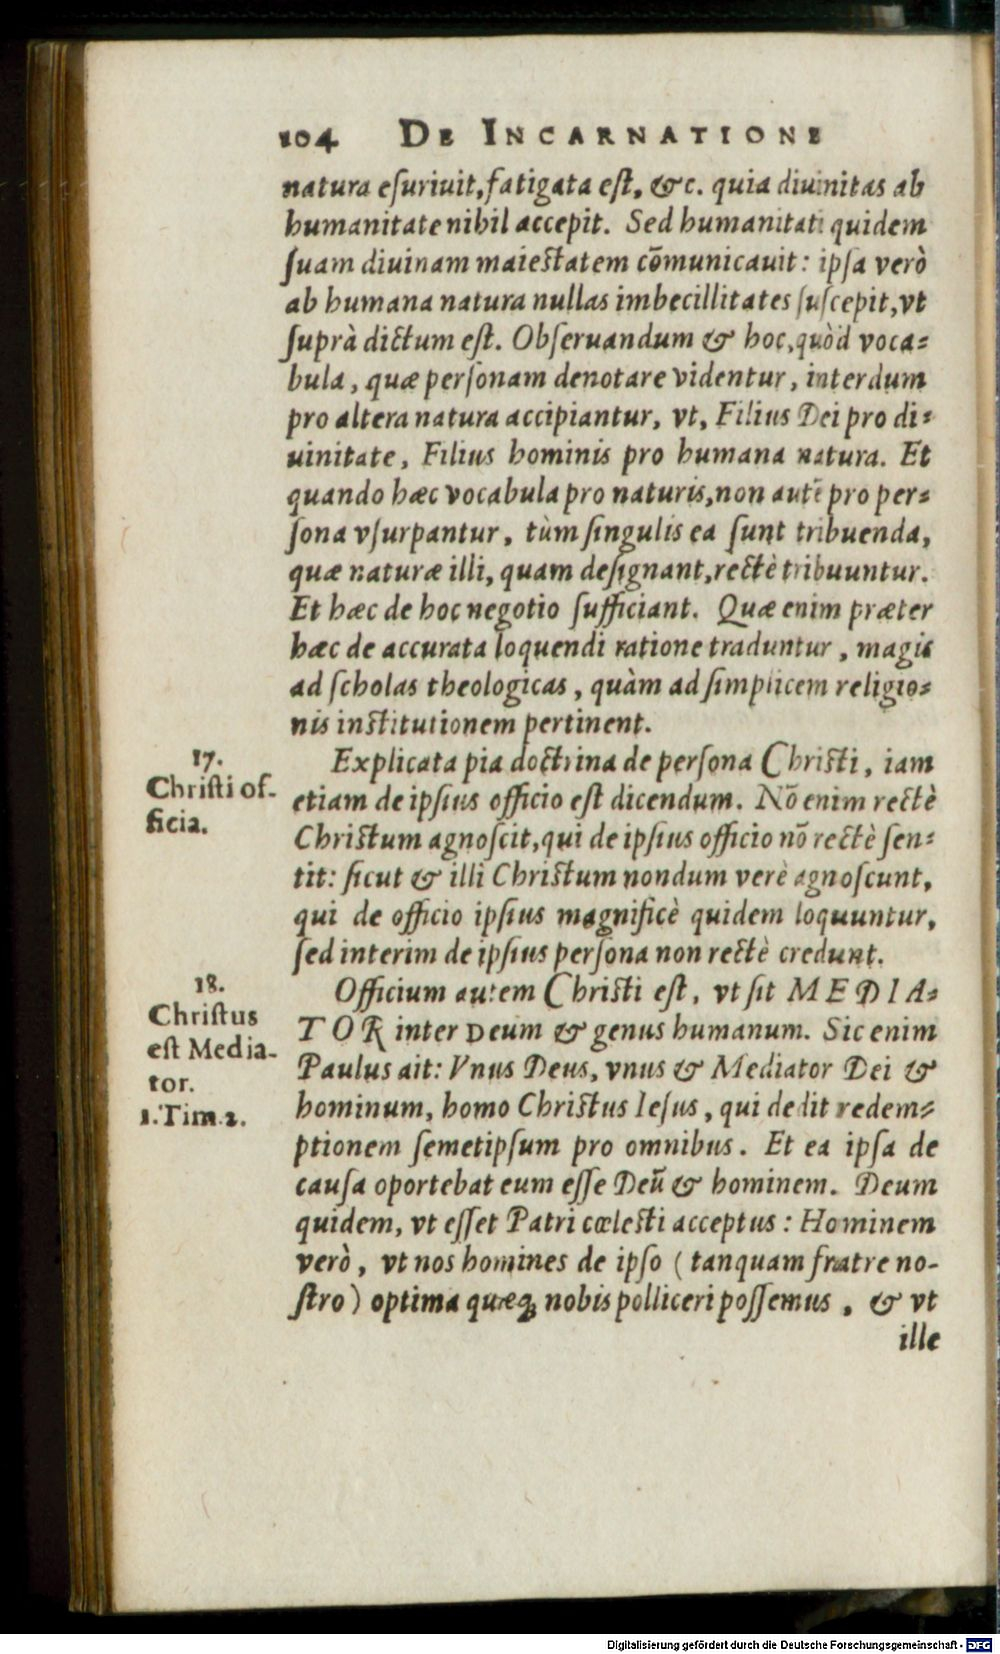 104 DE INCARNATIONE
natura eſuriuit, fatigata eſt, &c. quia diuinitas ab
humanitate nihil accepit. Sed humanitati quidem
ſuam diuinam maieſtatem cōmunicauit: ipſa verò
ab humana natura nullas imbecillitates ſuſcepit, vt
ſuprà dictum eſt. Obſeruandum & hoc, quòd voca-
bula, quæ perſonam denotare videntur, interdum
pro altera natura accipiantur, vt, Filius Dei pro di-
uinitate, Filius hominis pro humana natura. Et
quando hæc vocabula pro naturis, non autē pro per-
ſona vſurpantur, tùm ſingulis ea ſunt tribuenda,
quæ naturæ illi, quam deſignant, rectè tribuuntur.
Et hæc de hoc negotio ſufficiant. Quæ enim præter
hæc de accurata loquendi ratione traduntur, magis
ad ſcholas theologicas, quàm ad ſimplicem religio-
nis inſtitutionem pertinent.
17.
Chriſti of-
ficia.
Explicata pia doctrina de perſona Chriſti, iam
etiam de ipſius officio eſt dicendum. Nō enim rectè
Chriſtum agnoſcit, qui de ipſius officio nō rectè ſen-
tit: ſicut & illi Chriſtum nondum verè agnoſcunt,
qui de officio ipſius magnificè quidem loquuntur,
ſed interim de ipſius perſona non rectè credunt.
18.
Chriſtus
eſt Media-
tor.
1. Tim. 2.
Officium autem Chriſti eſt, vt ſit MEDIA-
TOR inter Deum & genus humanum. Sic enim
Paulus ait: Vnus Deus, vnus & Mediator Dei &
hominum, homo Chriſtus Ieſus, qui dedit redem-
ptionem ſemetipſum pro omnibus. Et ea ipſa de
cauſa oportebat eum eſſe Deū & hominem. Deum
quidem, vt eſſet Patri cœleſti acceptus: Hominem
verò, vt nos homines de ipſo (tanquam fratre no-
ſtro) optima quæq́; nobis polliceri poſſemus, & vt
ille
Digitalisierung gefördert durch die Deutsche Forschungsgemeinschaft - DFG